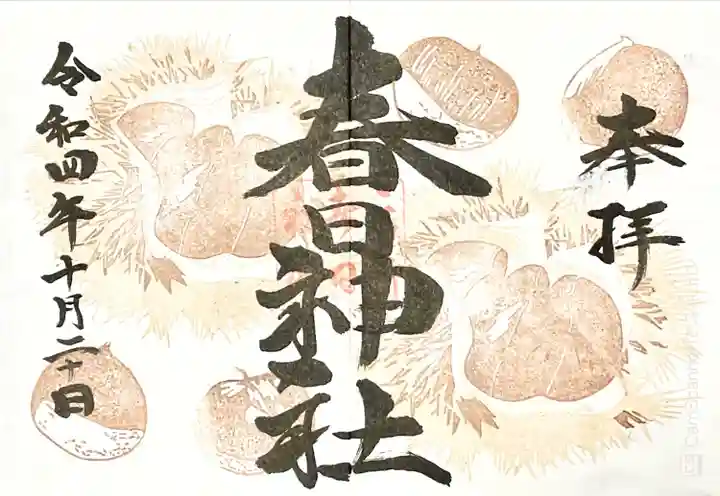 奉拝
春日神社
令和四年十月二十日
CamScanner